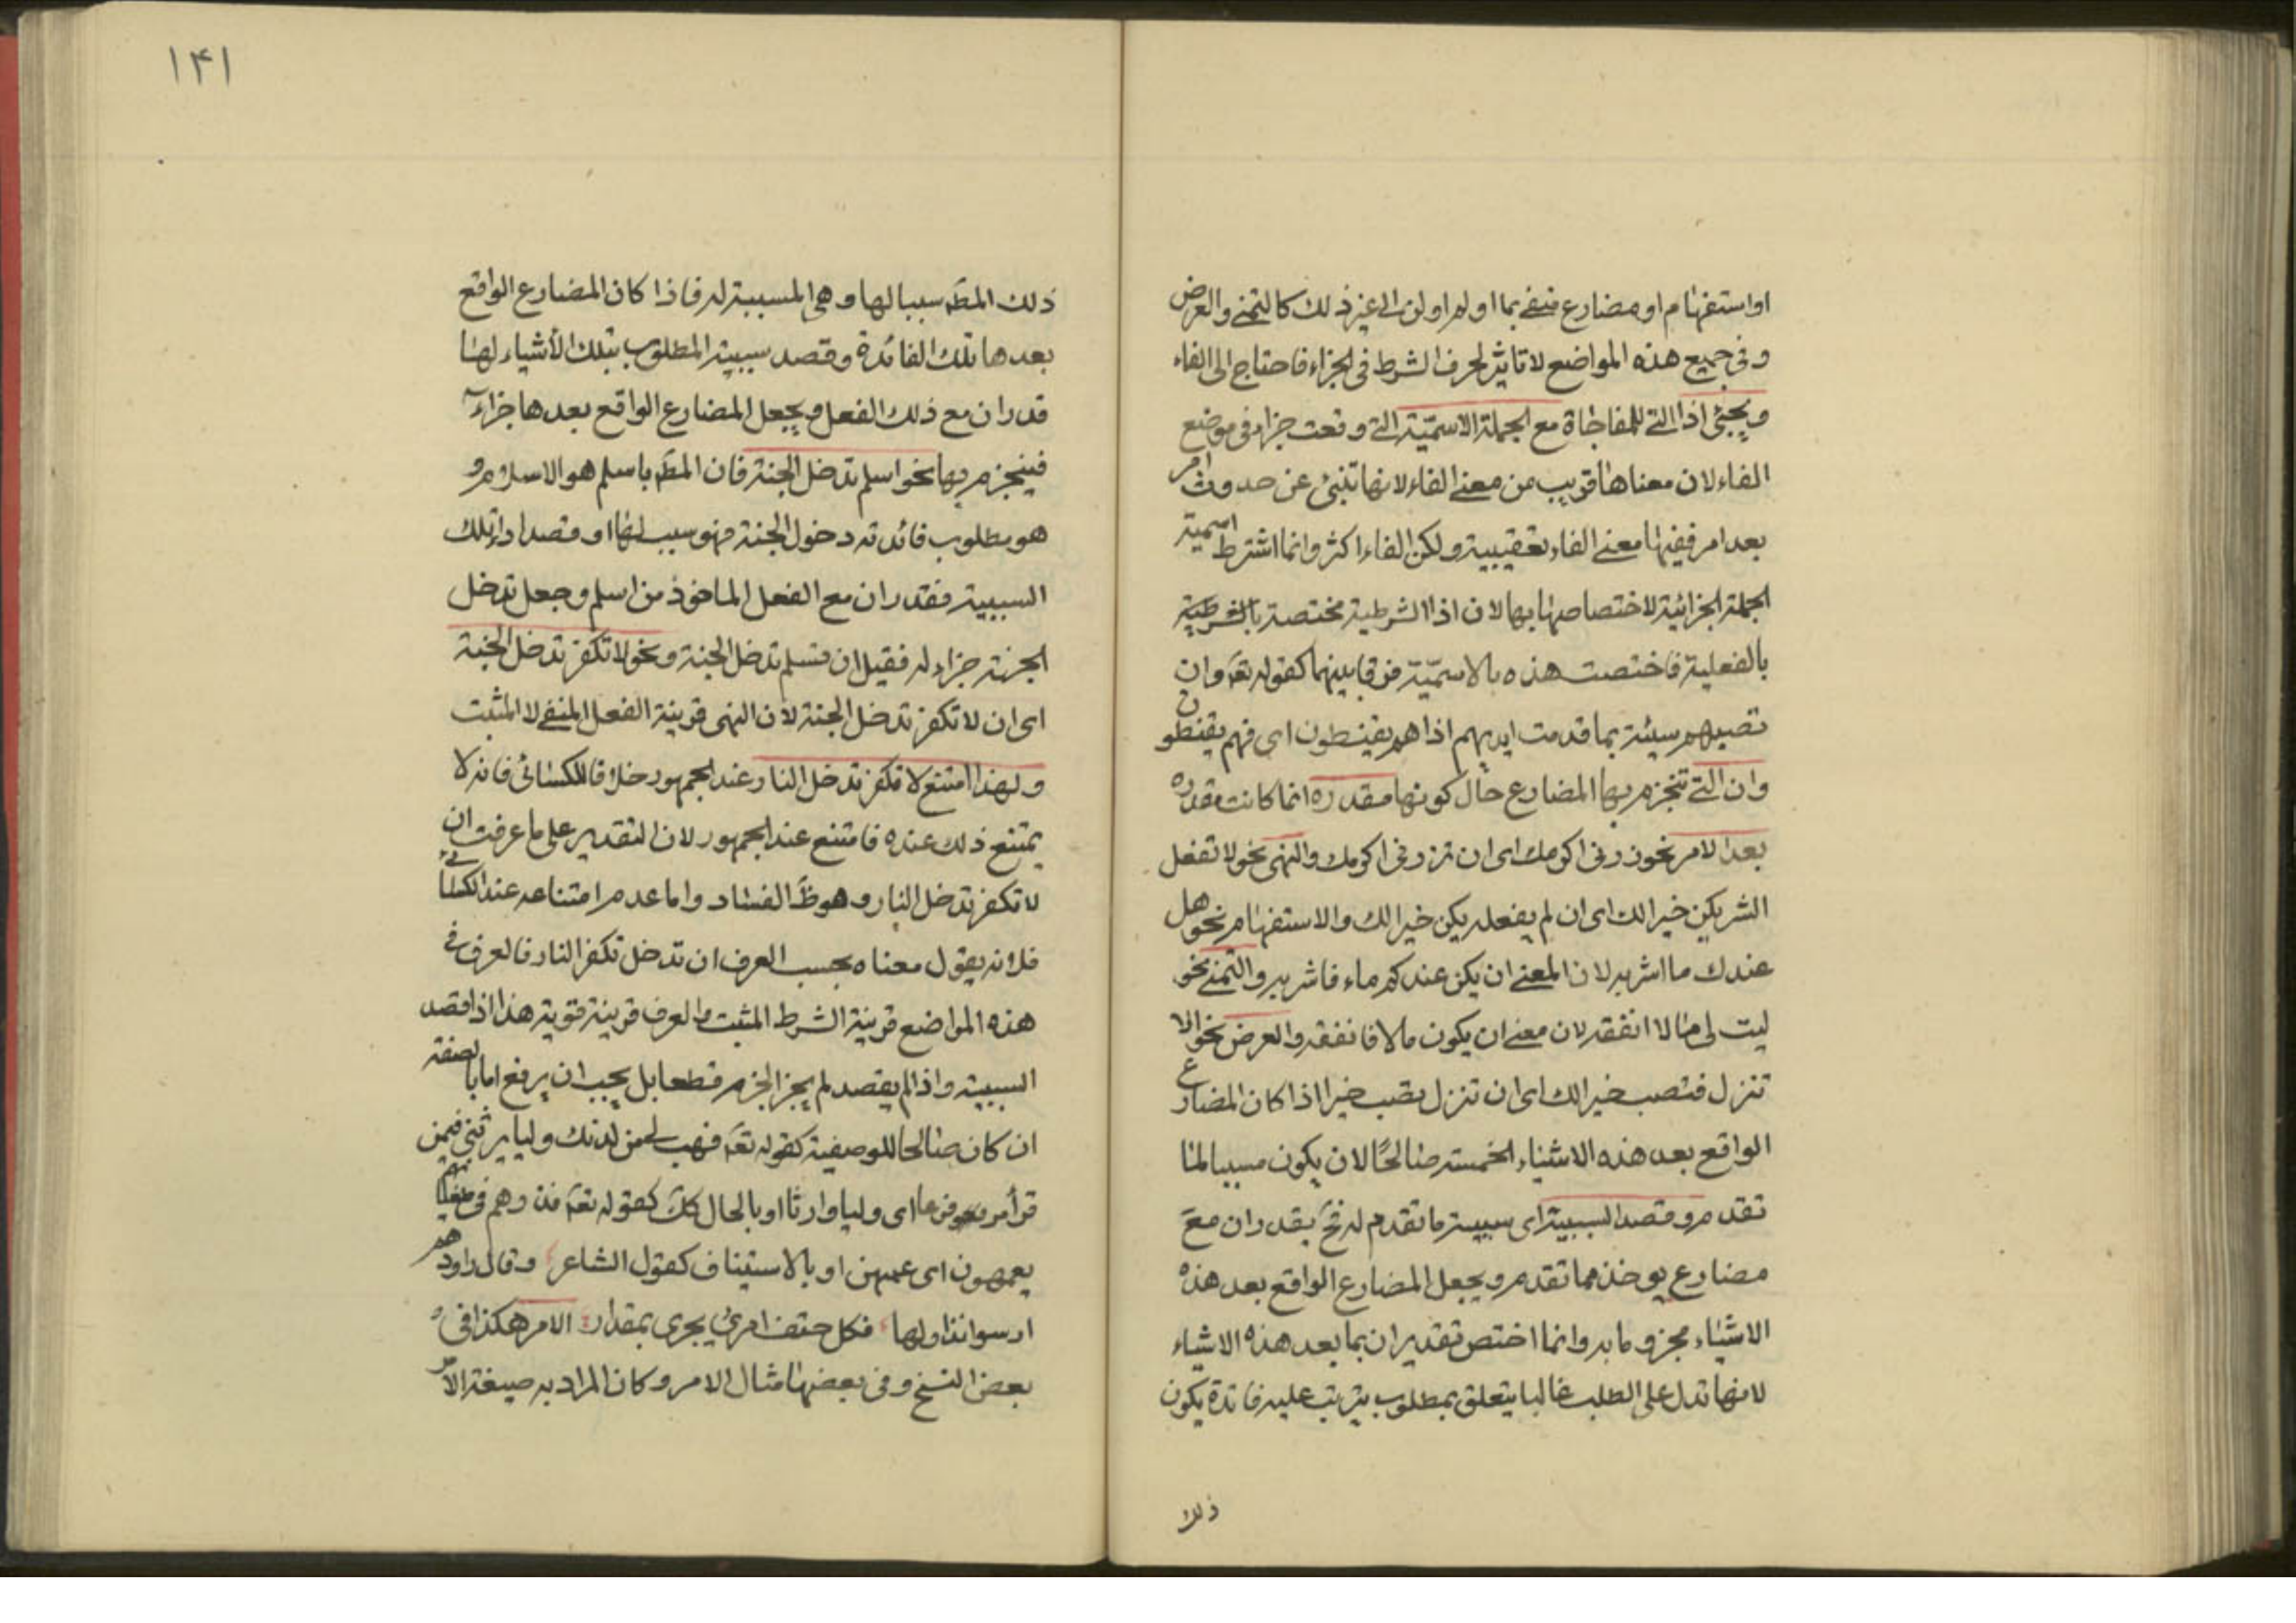 او استفهام او مضارع منفي بما او لم او لن الى غير ذلك كالتمني والعرض
وفي جميع هذه المواضع لا تاثير لحرف الشرط في الجزاء فاحتاج الى الفاء
ويجئ اذا التي للمفاجاة مع الجملة الاسميّة التي وقعت جزاء في موضع
الفاء لان معناها قريب من معنى الفاء لانها تنبئ عن حدوث امر
بعد امر ففيها معنى الفاء تعقيبية ولكن الفاء اكثر وانما اشترط اسمية
الجملة الجزائية لاختصاصها بها لان اذا الشرطية مختصة بالشرطية
بالفعلية فاختصت هذه بالاسميّة فرقا بينهما كقوله تعه وان
تصبهم سيئة بما قدمت ايديهم اذا هم يقنطون اى فهم يقنطون
وان التي تنجزم بها المضارع حال كونها مقدره انما كانت مقدره
بعد الامر نحو زرني اكرمك اى ان تزرني اكرمك والنهى نحو لا تفعل
الشر يكن خيرا لك اى ان لم يفعله يكن خيرا لك والاستفهام نحو هل
عندك ما اشربه لان المعنى ان يكن عندكم ماء فاشربه والتمني نحو
ليت لي مالا انفقه لان معنى ان يكون مالا فانفقه والعرض نحو الا
تنزل فتصب خيرا لك اى ان تنزل تصب خيرا اذا كان المضارع
الواقع بعد هذه الاشياء الخمسة صالحًا لان يكون مسببا لما
تقدم وقصد السببية اى سببية ما تقدم له فح يقدر ان مع
مضارع يوخذ مما تقدم ويجعل المضارع الواقع بعد هذه
الاشياء مجزوما به وانما اختص تقدير ان بما بعد هذه الاشياء
لانها تدل على الطلب غالبا يتعلق بمطلوب يترتب عليه فائدة يكون
ذلك
١۴١
ذلك المطه سببا لها وهى المسببة له فاذا كان المضارع الواقع
بعدها تلك الفائدة وقصد سببية المطلوب بتلك الأشياء لها
قدر ان مع ذلك الفعل ويجعل المضارع الواقع بعدها جزاء
فينجزم بها نحو اسلم تدخل الجنة فان المطه باسلم هو الاسلام و
هو مطلوب فائدته دخول الجنة فهو سبب لها او قصد اداء تلك
السببية فقدر ان مع الفعل الماخوذ من اسلم وجعل تدخل
الجنة جزاء له فقيل ان تسلم تدخل الجنة ونحو لا تكفر تدخل الجنة
اى ان لا تكفر تدخل الجنة لان النهى قرينة الفعل المنفي لا المثبت
ولهذا امتنع لا تكفر تدخل النار عند الجمهور خلافا للكسائى فانه لا
يمتنع ذلك عنده فامتنع عند الجمهور لان التقدير على ما عرفت ان
لا تكفر تدخل النار وهو ظ الفساد واما عدم امتناعه عند الكسائي
فلانه يقول معناه بحسب العرف ان تدخل تكفر النار فالعرف في
هذه المواضع قرينة الشرط المثبت والعرف قرينة قوية هذا اذا قصد
السببية واذا لم يقصد لم يجز الجزم قطعا بل يجب ان يرفع اما بالصفة
ان كان صالحا للوصفية كقوله تعه فهب لي من لدنك وليا يرثني فيمن
قرأ مرفوعا اى وليا وارثا او بالحال كك كقوله تعه فذرهم في طغيانهم
يعمهون اى عمهين او بالاستيناف كقول الشاعر وقال راودهم
ارسوا نزاولها فكل حتف امرئ يجرى بمقدار الامر هكذا في
بعض النسخ وفي بعضها مثال الامر وكان المراد به صيغة الامر